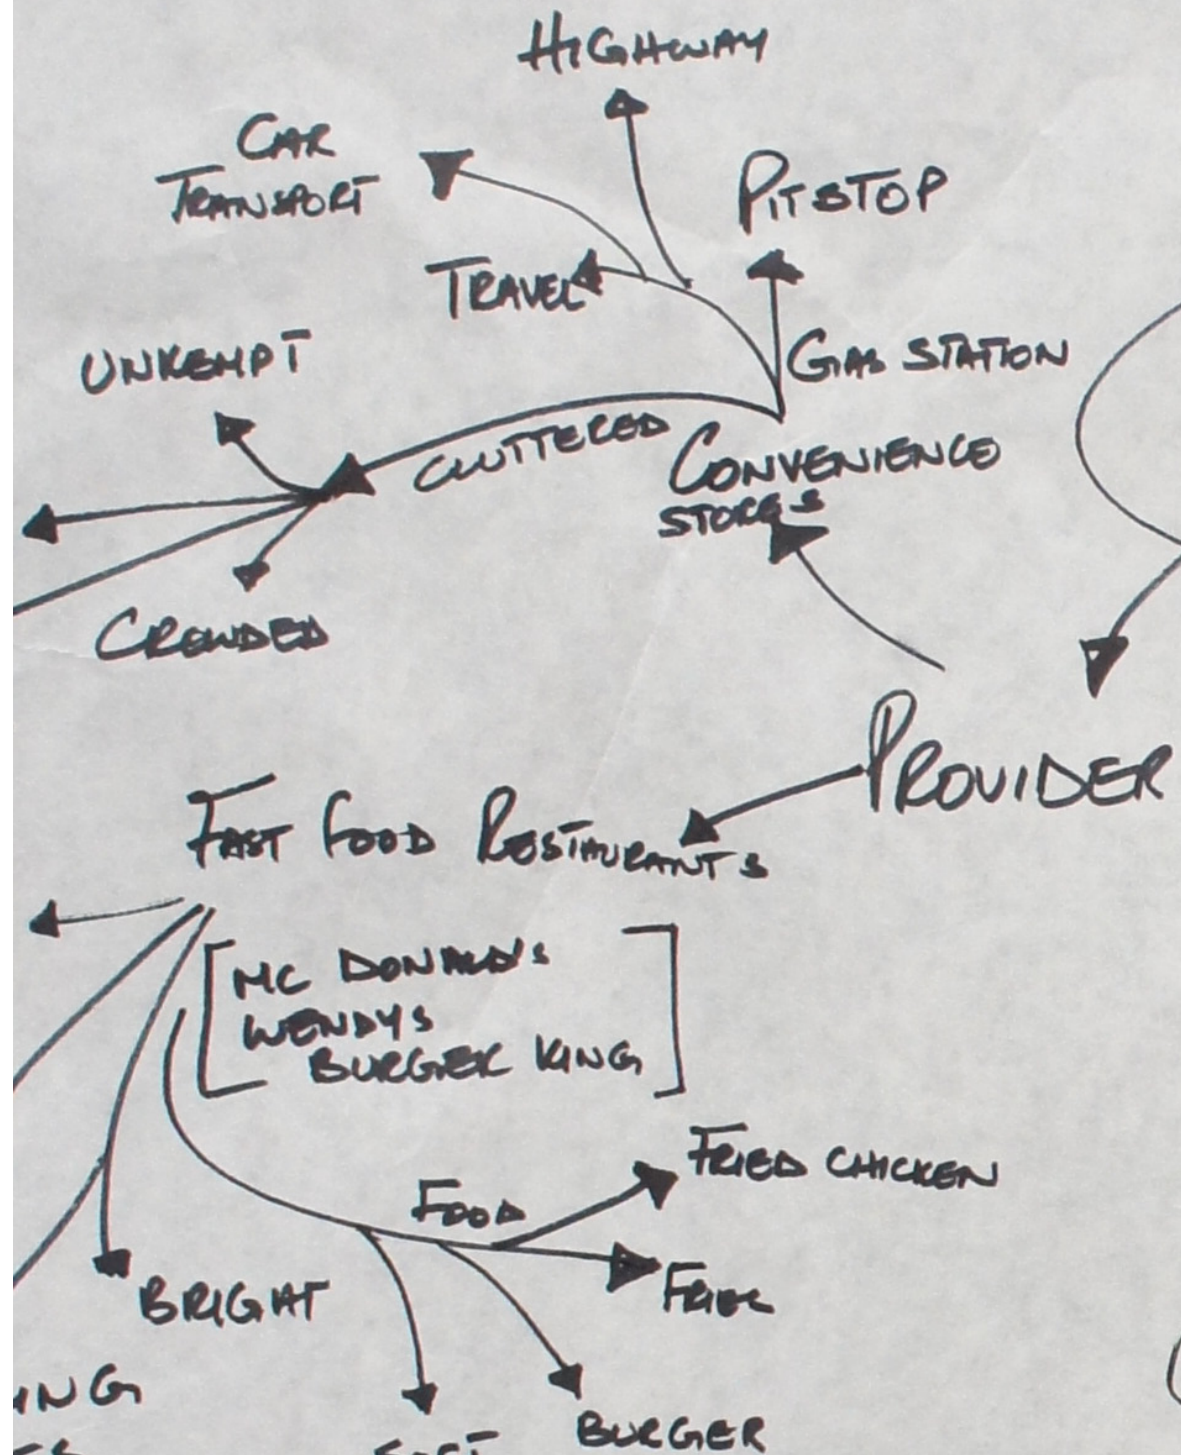 HIGHWAY
CAR
TRANSPORT
PITSTOP
TRAVEL
GAS STATION
UNKEMPT
CLUTTERED
CONVENIENCE
STORES
CROWDED
PROVIDER
FAST FOOD RESTAURANTS
[MC DONALD'S
WENDYS
BURGER KING]
FRIED CHICKEN
FOOD
FRIES
BRIGHT
ING
BURGER